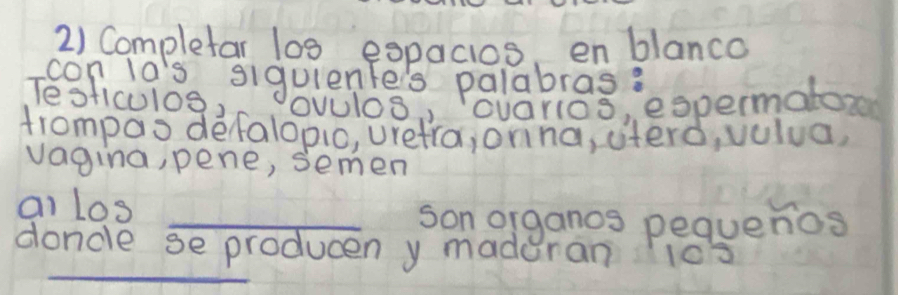 2) Completar los espacios en blanco
con las siguientes palabras:
Testiculos, ovulos, ovarios, espermatozo
trompas de falopio, uretra, orina, utero, vulva,
vagina, pene, semen
a) Los ________ son organos pequeños
donde se producen y maduran los
________